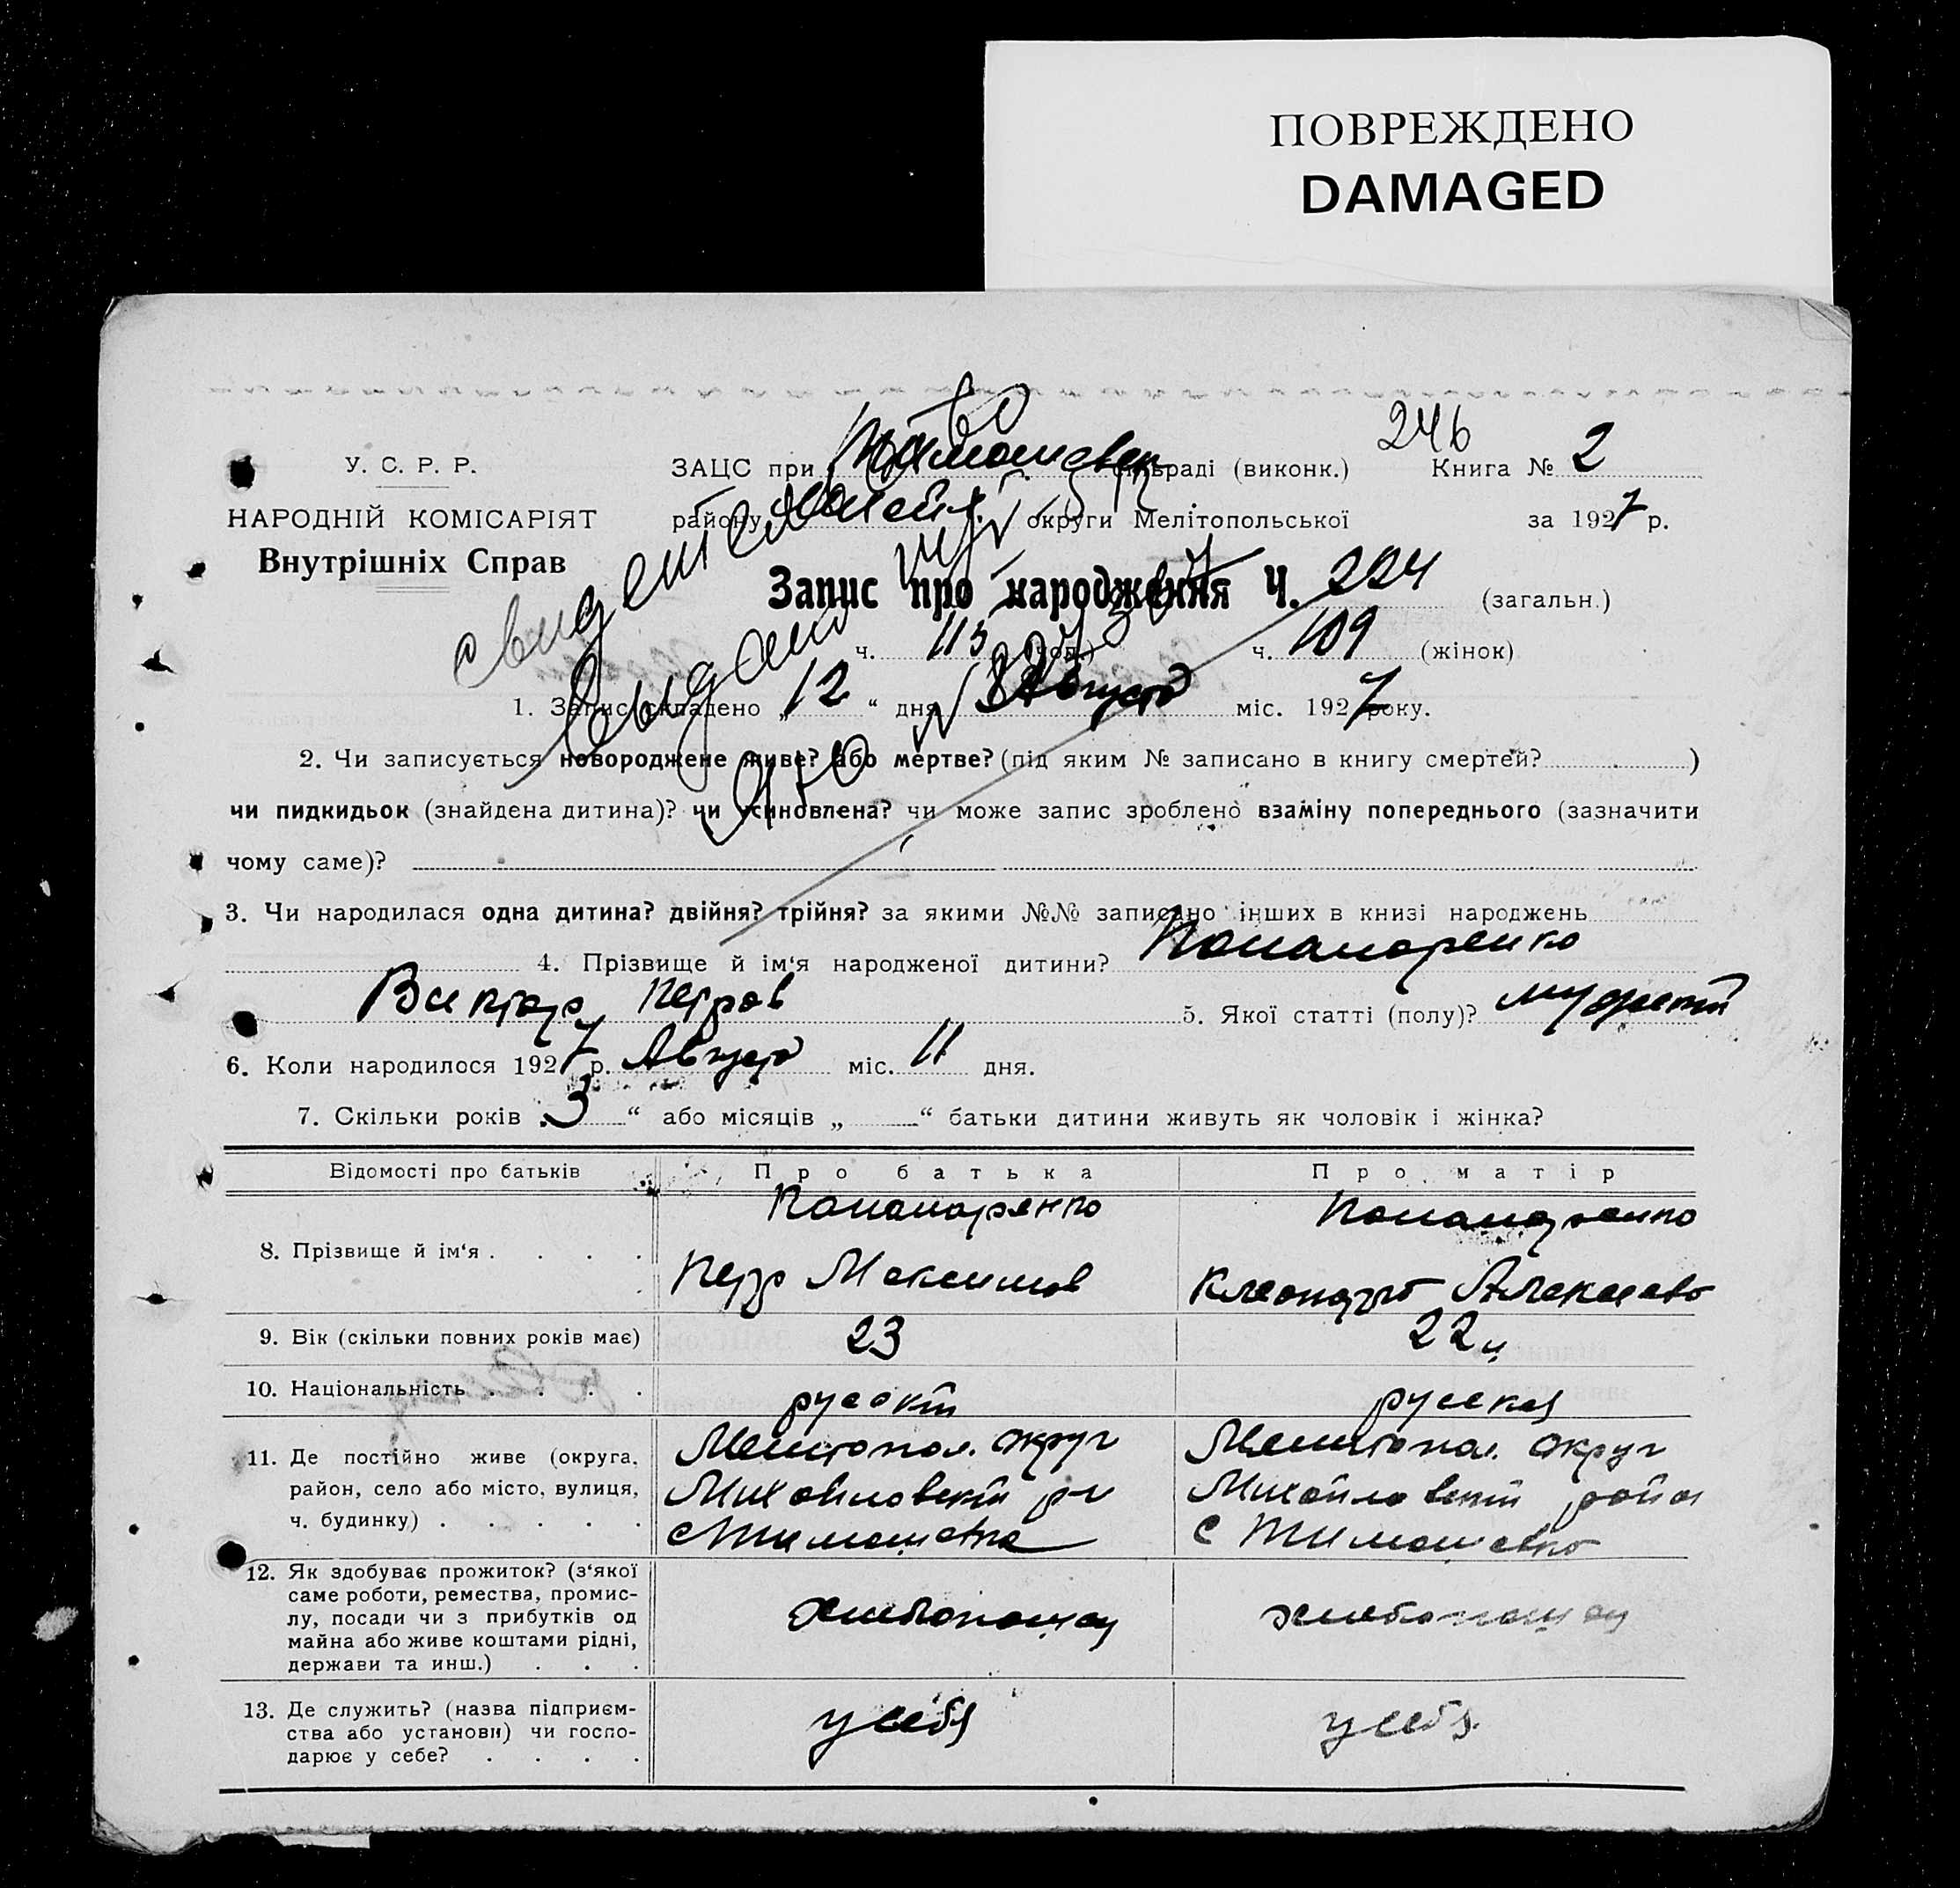 ПОВРЕЖДЕНО
DAMAGED
246
У. С. Р. Р.
ЗАЦС при Тимошевск сільраді (виконк.) Книга № 2
НАРОДНІЙ КОМІСАРІЯТ
району Михайл. округи Мелітопольської за 1927 р.
Внутрішніх Справ
Запис про народження Ч. 224 (загальн.)
ч. 115 (чол.) ч. 109 (жінок)
1. Запис складено „12“ дня Августа міс. 1927 року.
2. Чи записується новороджене живе? або мертве? (під яким № записано в книгу смертей? )
чи пидкидьок (знайдена дитина)? чи усиновлена? чи може запис зроблено взаміну попереднього (зазначити
чому саме)?
3. Чи народилася одна дитина? двійня? трійня? за якими №№ записано інших в книзі народжень
4. Прізвище й ім‘я народженої дитини? Понамаренко
Виктор Петров 5. Якої статті (полу)? мужской
6. Коли народилося 1927 р. Августа міс. 11 дня.
7. Скільки років „3“ або місяців „ “ батьки дитини живуть як чоловік і жінка?
Відомості про батьків Про батька Про матір
Понамаренко Понамаренко
8. Прізвище й ім‘я . . . .
Петр Максимов Александр
9. Вік (скільки повних років має) 23 22
10. Національність . . . . русский русская
11. Де постійно живе (округа, Мелитопол. округ Мелитопол. округ
район, село або місто, вулиця, Михайловский р-н Михайловский район
ч. будинку) . . . . . с Тимошевка с Тимошевка
12. Як здобуває прожиток? (з‘якої
саме роботи, ремества, промис-
лу, посади чи з прибутків од хлебопашец хлебопашец
майна або живе коштами рідні,
держави та инш.) . . .
13. Де служить? (назва підприєм- у себя у себя
ства або установи) чи госпо-
дарює у себе? . . . .
свидетельство
выдано